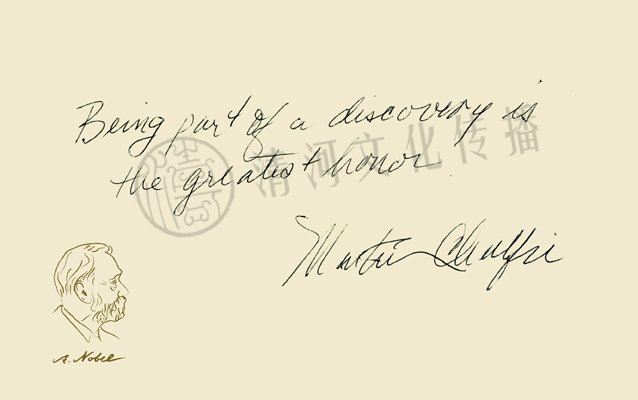 Being part of a discovery is
the greatest honor
清河文化传播
Martin Chalfie
A. Nobel